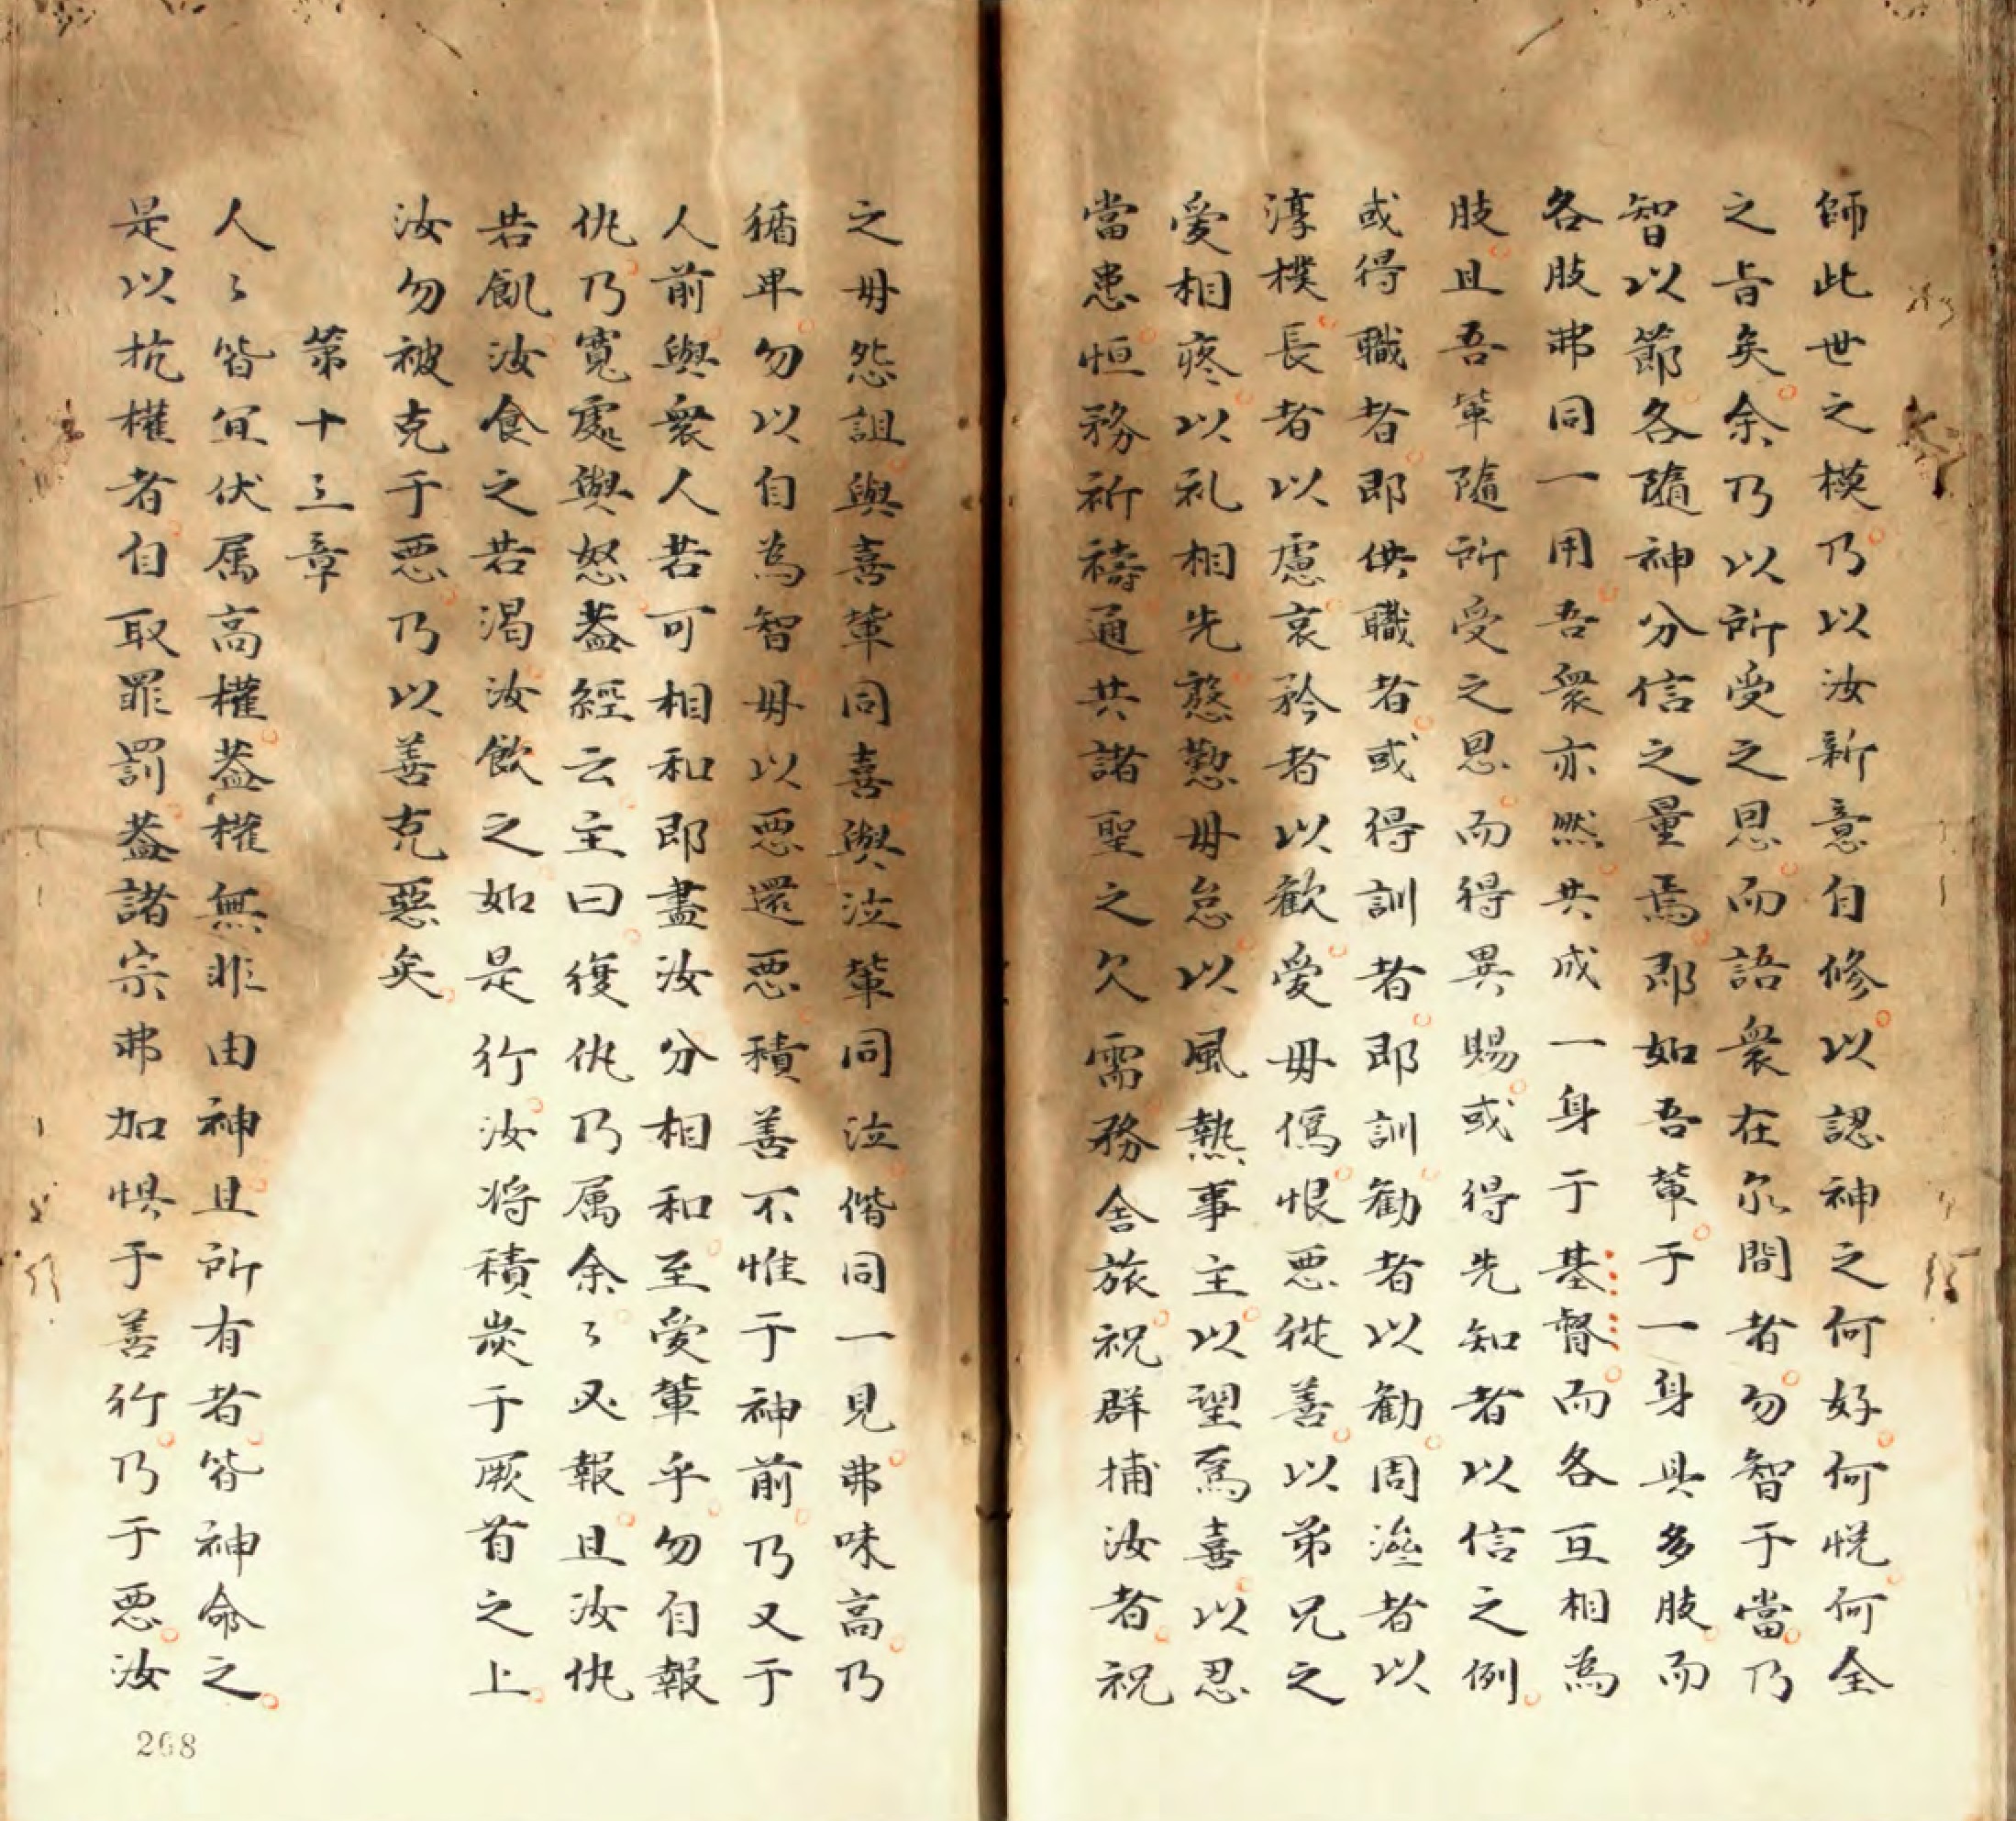 師此世之模乃以汝新意自修以認神之何好何悅何全
之旨矣余乃以所受之恩而語衆在尔間者勿智于當乃
智以節各隨神分信之量焉即如吾輩于一身具多肢而
各肢弗同一用吾衆亦然共成一身于基督而各互相為
肢且吾輩隨所受之恩而得異賜或得先知者以信之例
或得職者即供職者或得訓者即訓勸者以勸周濟者以
淳樸長者以慮哀矜者以歡愛毋僞恨悪從善以弟兄之
愛相疼以礼相先慇懃毋怠以風熱事主以望為喜以忍
當患恒務祈禱通共諸聖之欠需務舍旅祝群捕汝者祝
之毋怨詛與喜輩同喜與泣輩同泣偕同一見弗味高乃
循卑勿以自為智毋以悪還悪積善不惟于神前乃又于
人前與衆人若可相和即盡汝分相和至愛輩乎勿自報
仇乃寬處與怒葢經云主曰復仇乃属余〻必報且汝仇
若飢汝食之若渴汝飲之如是行汝将積炭于厥首之上
汝勿被克于悪乃以善克惡矣
第十三章
人〻皆宜伏属高權葢權無非由神且所有者皆神命之
是以抗權者自取罪罰葢諸宗弗加惧于善行乃于悪汝
268